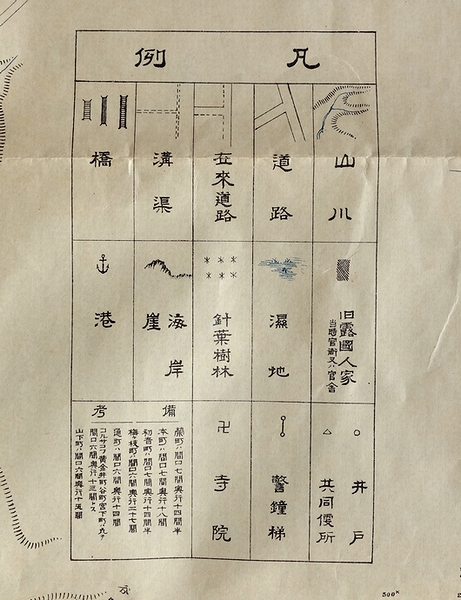 凡例
山川
道路
在來道路
溝渠
橋
旧露國人家
当時官衙又ハ官舎
濕地
針葉樹林
海岸
崖
港
井戸
共同便所
警鐘梯
寺院
備考
榮町ハ間口七間奥行十四間半
本町ハ間口七間奥行十八間
初音町ハ間口七間奥行十四間半
梅ヶ枝町ハ間口六間奥行二十七間
通町ハ間口六間奥行十四間
コルサコフ黄金井町谷町宮下町ハ凡テ
間口六間奥行十三間トス
山下町ハ間口六間奥行十五間
500